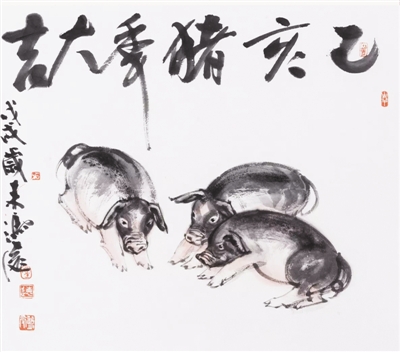 己亥猪年大吉
戊戌歳末